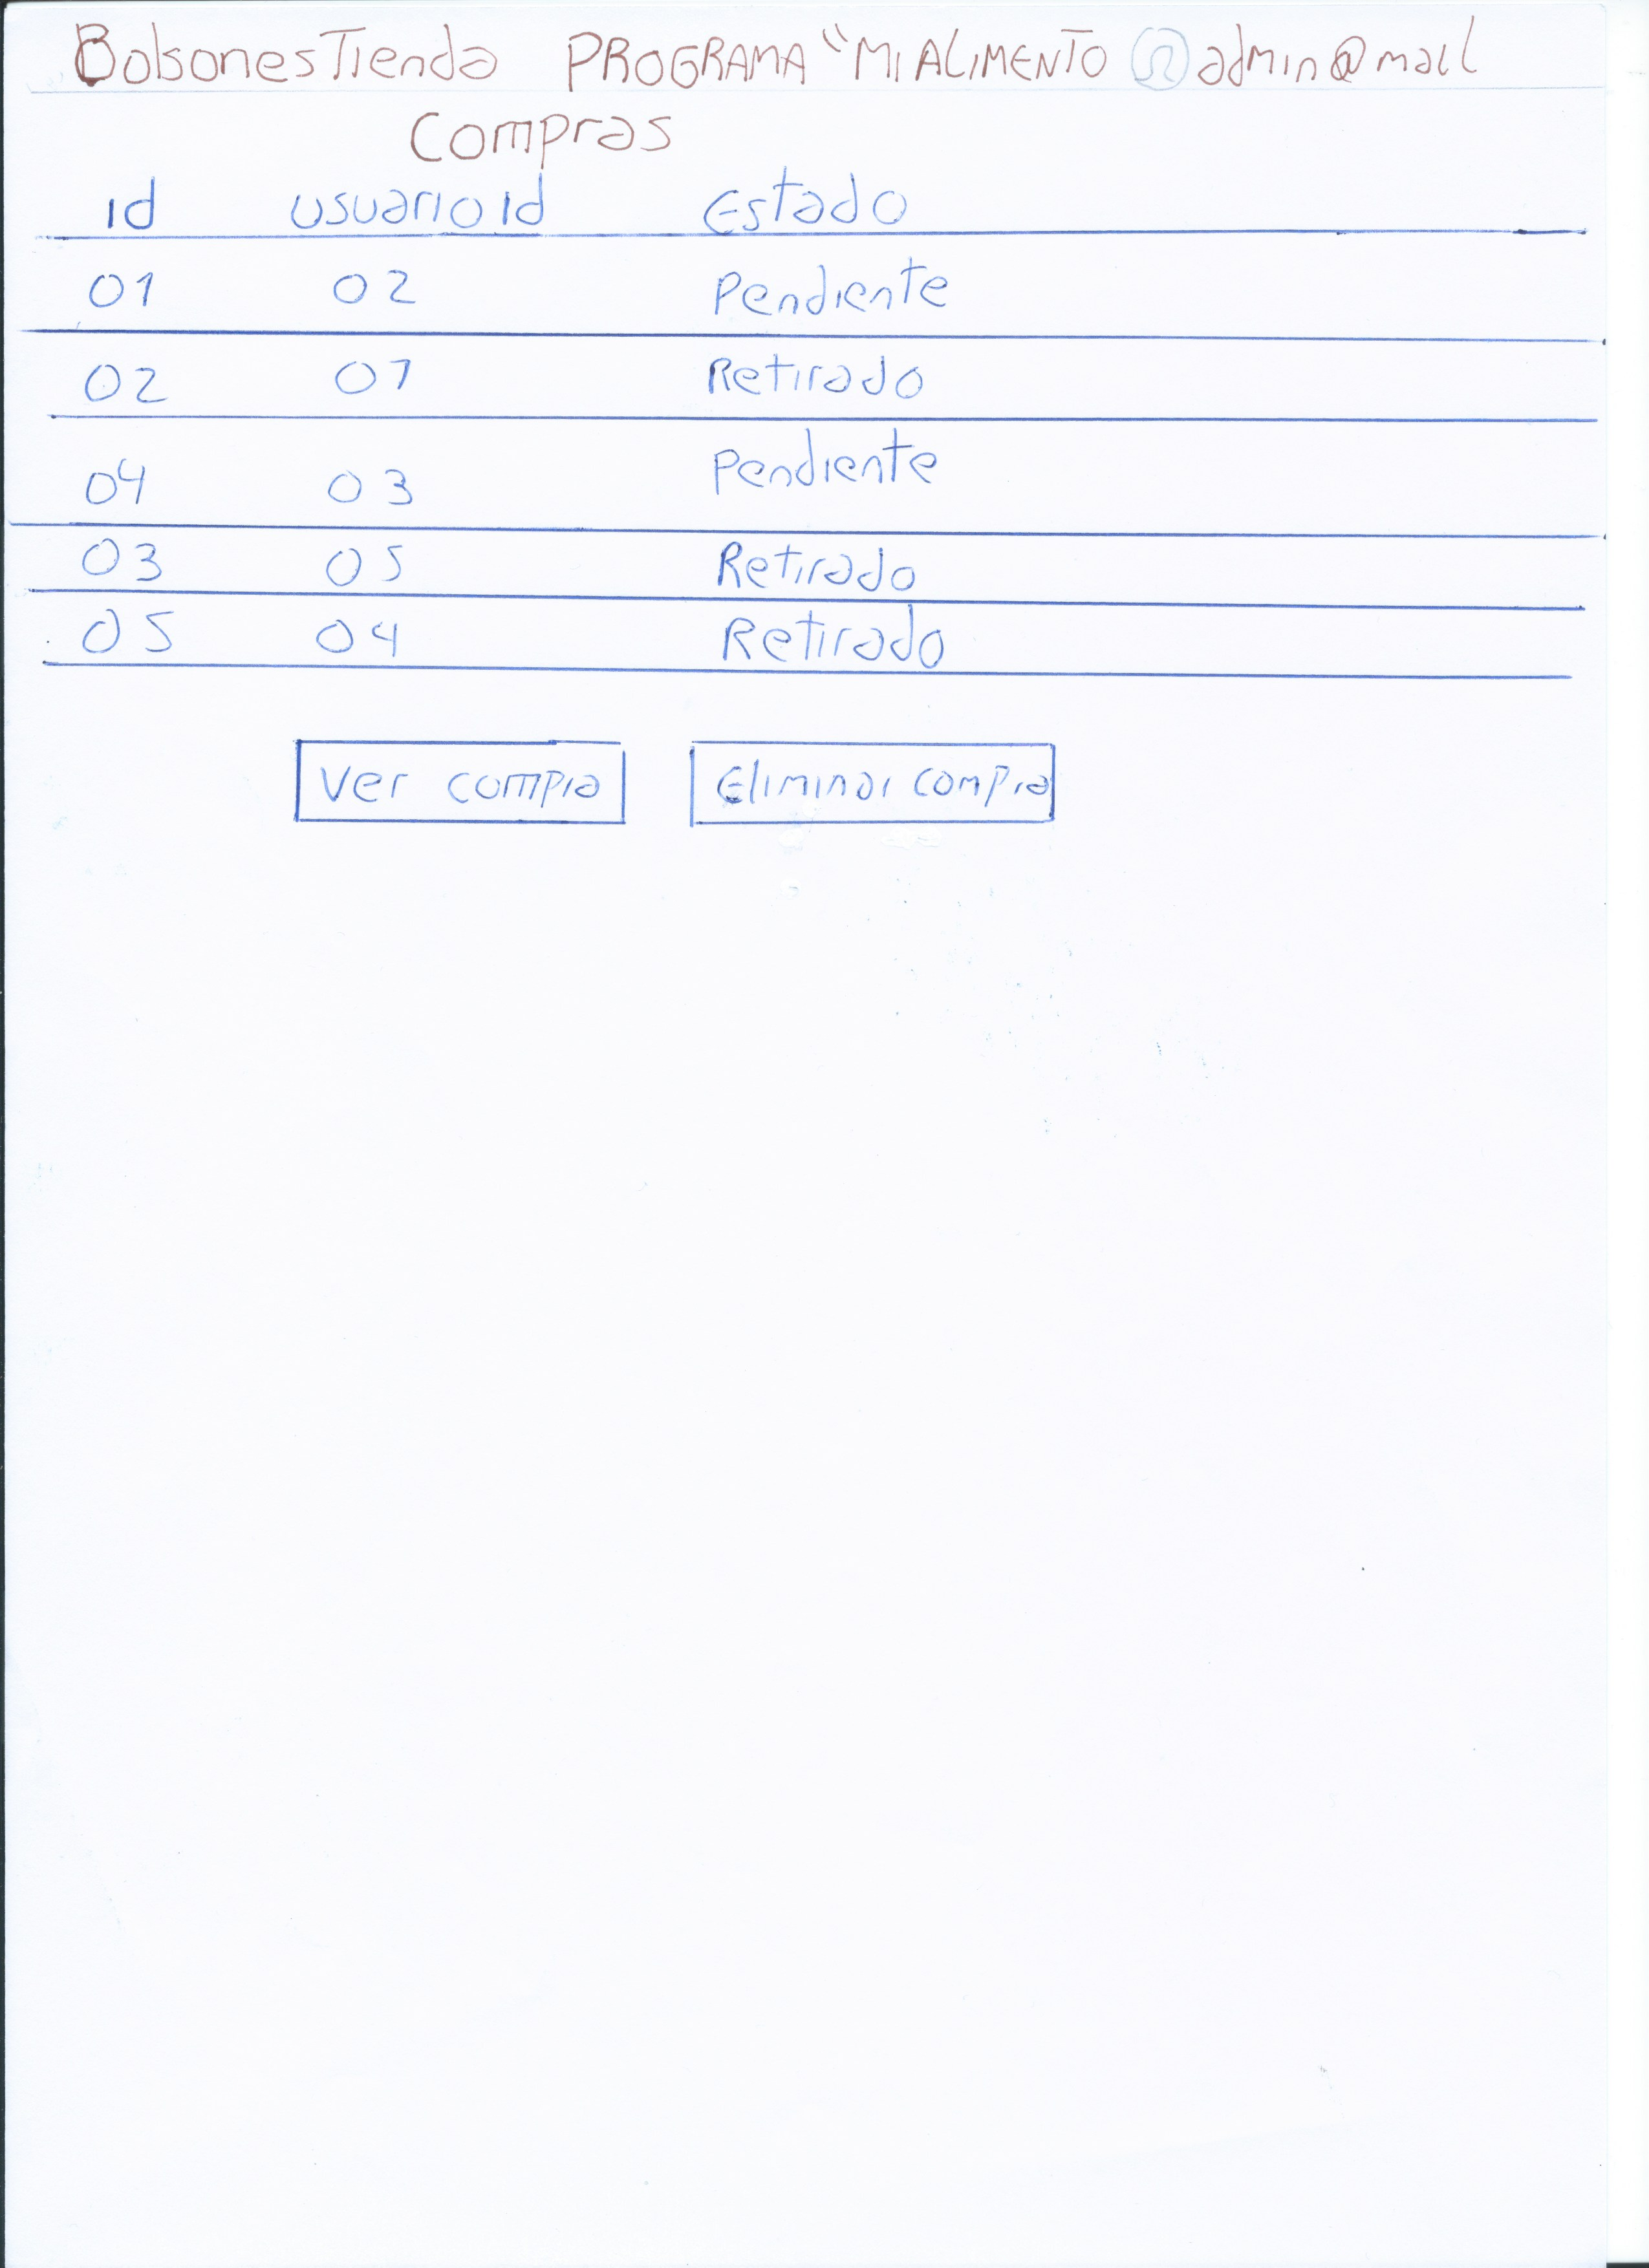 BolsonesTienda PROGRAMA "MI ALIMENTO admin@mail
Compras
id usuario Id Estado
01 02 Pendiente
02 01 Retirado
04 03 Pendiente
03 05 Retirado
05 04 Retirado
Ver compra Eliminar compra